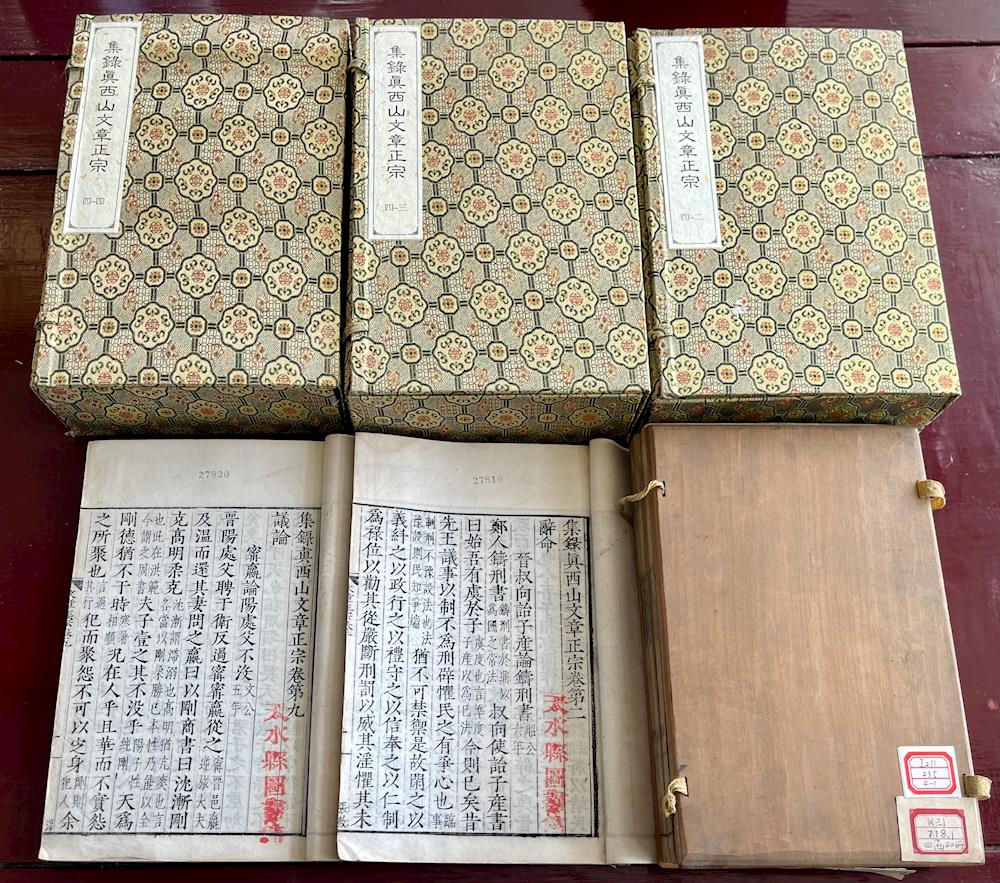 集錄眞西山文章正宗
四-四
集錄眞西山文章正宗
四-三
集錄眞西山文章正宗
四-二
27820
集錄眞西山文章正宗卷第九
議論
甯嬴論陽處父不沒
文公
五年
晉陽處父聘于衛反過甯甯嬴從之
及溫而還其妻問之嬴曰以剛商書曰沈漸剛
克高明柔克
夫子壹之其不沒乎
天爲
剛德猶不干時
況在人乎且華而不實怨
之所聚也
犯而聚怨不可以定身
余
27816
集錄眞西山文章正宗卷第二
辭命
晉叔向詒子產論鑄刑書
鄭人鑄刑書
叔向使詒子產書
曰始吾有虞於子
今則已矣昔
先王議事以制不爲刑辟懼民之有爭心也
猶不可禁禦是故閑之以
義糾之以政行之以禮守之以信奉之以仁制
爲祿位以勸其從嚴斷刑罰以威其淫懼其未
水縣圖
水縣圖
I211
235
4-1
K21
718.1